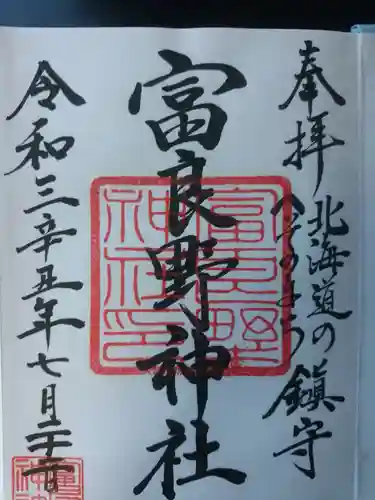 奉拝
北海道の
へそのまち
鎮守
富良野神社
富良野
神社印
令和三辛丑年七月二十二日